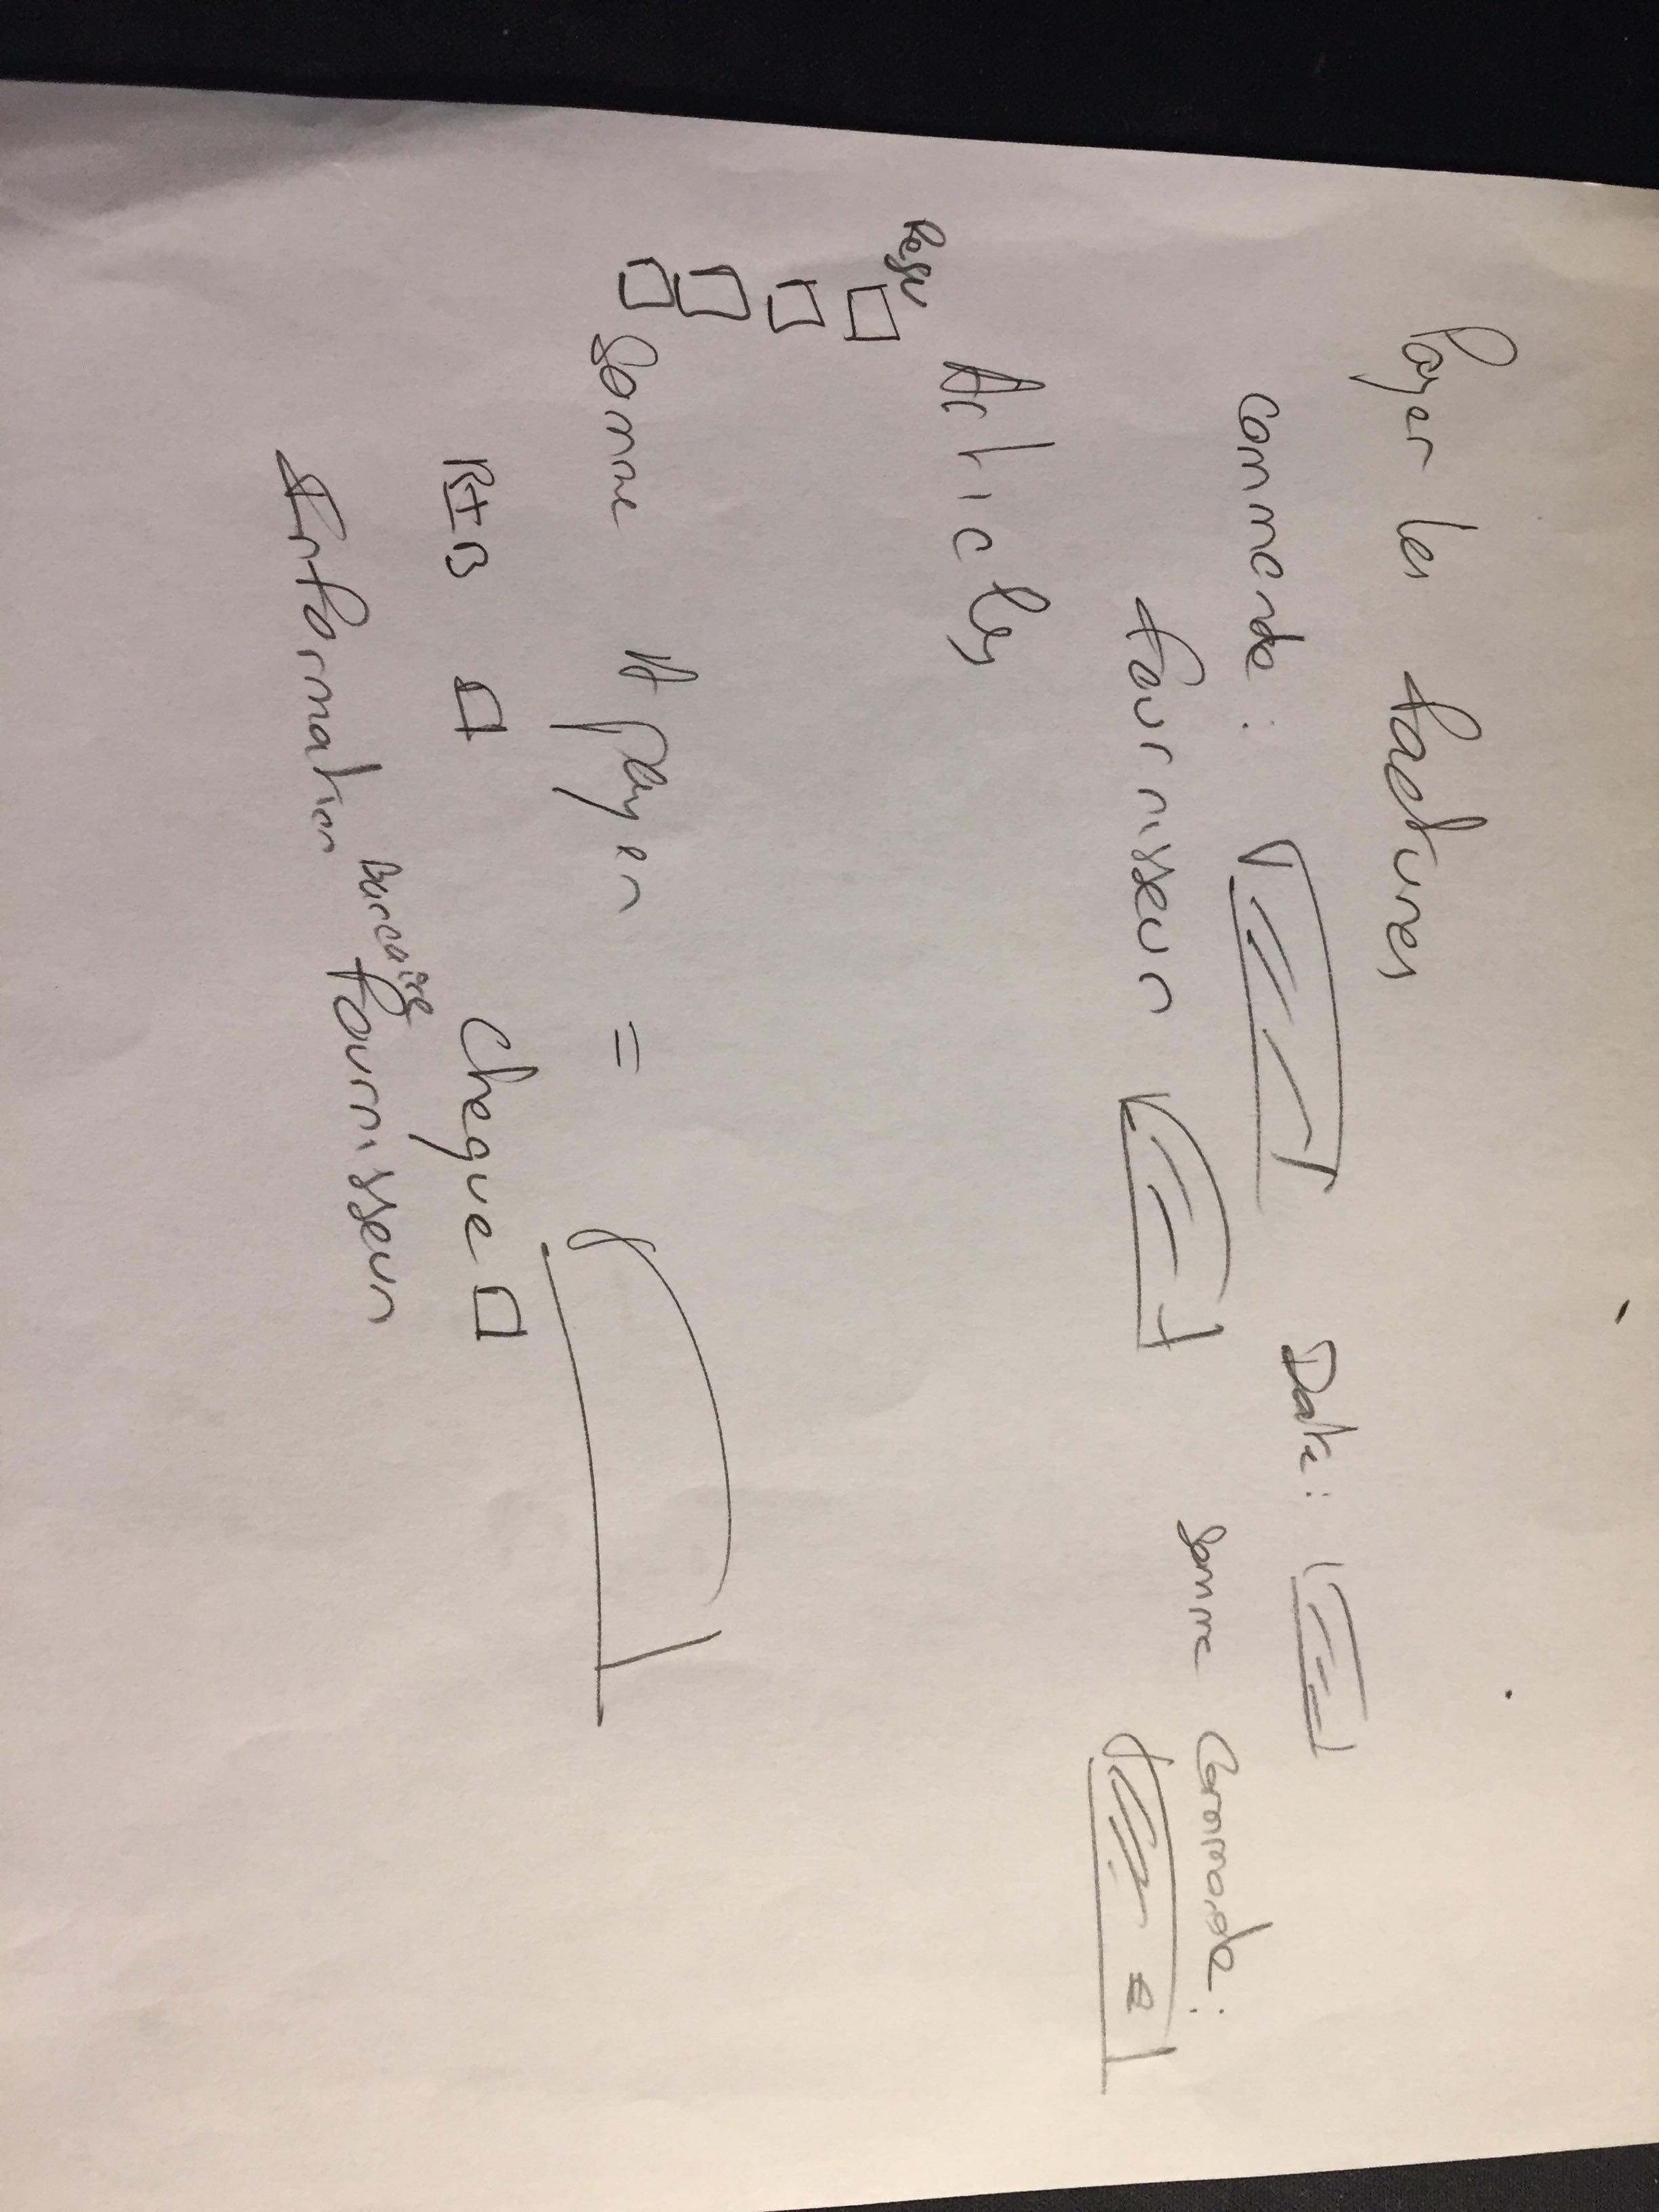 Payer les factures
commande : Date :
fournisseur somme Commande :
Articles
Resu
Somme A payer =
RIB Cheque
Information Bancaire fournisseur